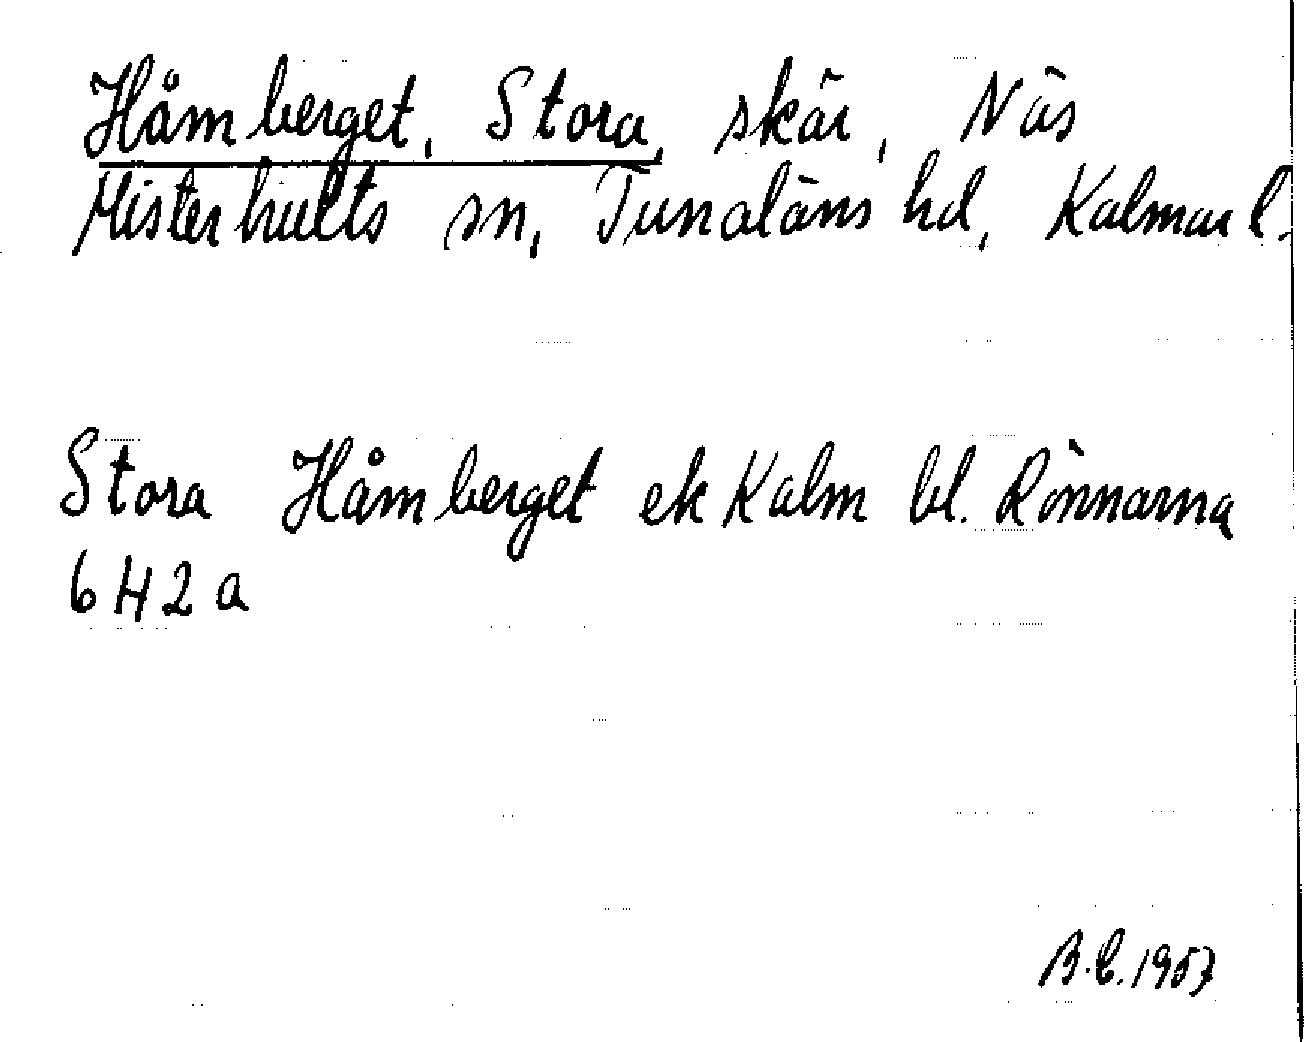 Håmberget, Stora, skär, Näs
Misterhults sn, Tunaläns hd, Kalmar l.
Stora Håmberget ek Kalm bl. Rönnarna
6 H 2 a
B.E. 1957